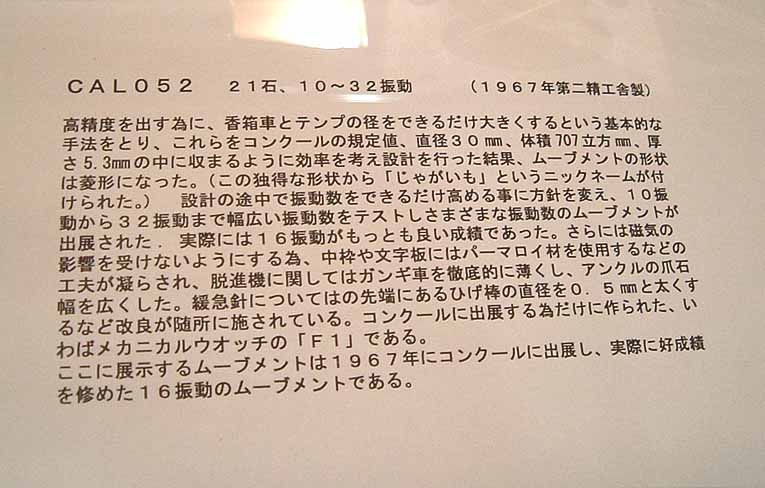 ＣＡＬ０５２　２１石、１０～３２振動　（１９６７年第二精工舎製）
高精度を出す為に、香箱車とテンプの径をできるだけ大きくするという基本的な
手法をとり、これらをコンクールの規定値、直径３０㎜、体積707立方㎜、厚
さ5.3㎜の中に収まるように効率を考え設計を行った結果、ムーブメントの形状
は菱形になった。（この独得な形状から「じゃがいも」というニックネームが付
けられた。）　設計の途中で振動数をできるだけ高める事に方針を変え、１０振
動から３２振動まで幅広い振動数をテストしさまざまな振動数のムーブメントが
出展された．実際には１６振動がもっとも良い成績であった。さらには磁気の
影響を受けないようにする為、中枠や文字板にはパーマロイ材を使用するなどの
工夫が凝らされ、脱進機に関してはガンギ車を徹底的に薄くし、アンクルの爪石
幅を広くした。緩急針についてはの先端にあるひげ棒の直径を０．５㎜と太くす
るなど改良が随所に施されている。コンクールに出展する為だけに作られた、い
わばメカニカルウオッチの「Ｆ１」である。
ここに展示するムーブメントは１９６７年にコンクールに出展し、実際に好成績
を修めた１６振動のムーブメントである。